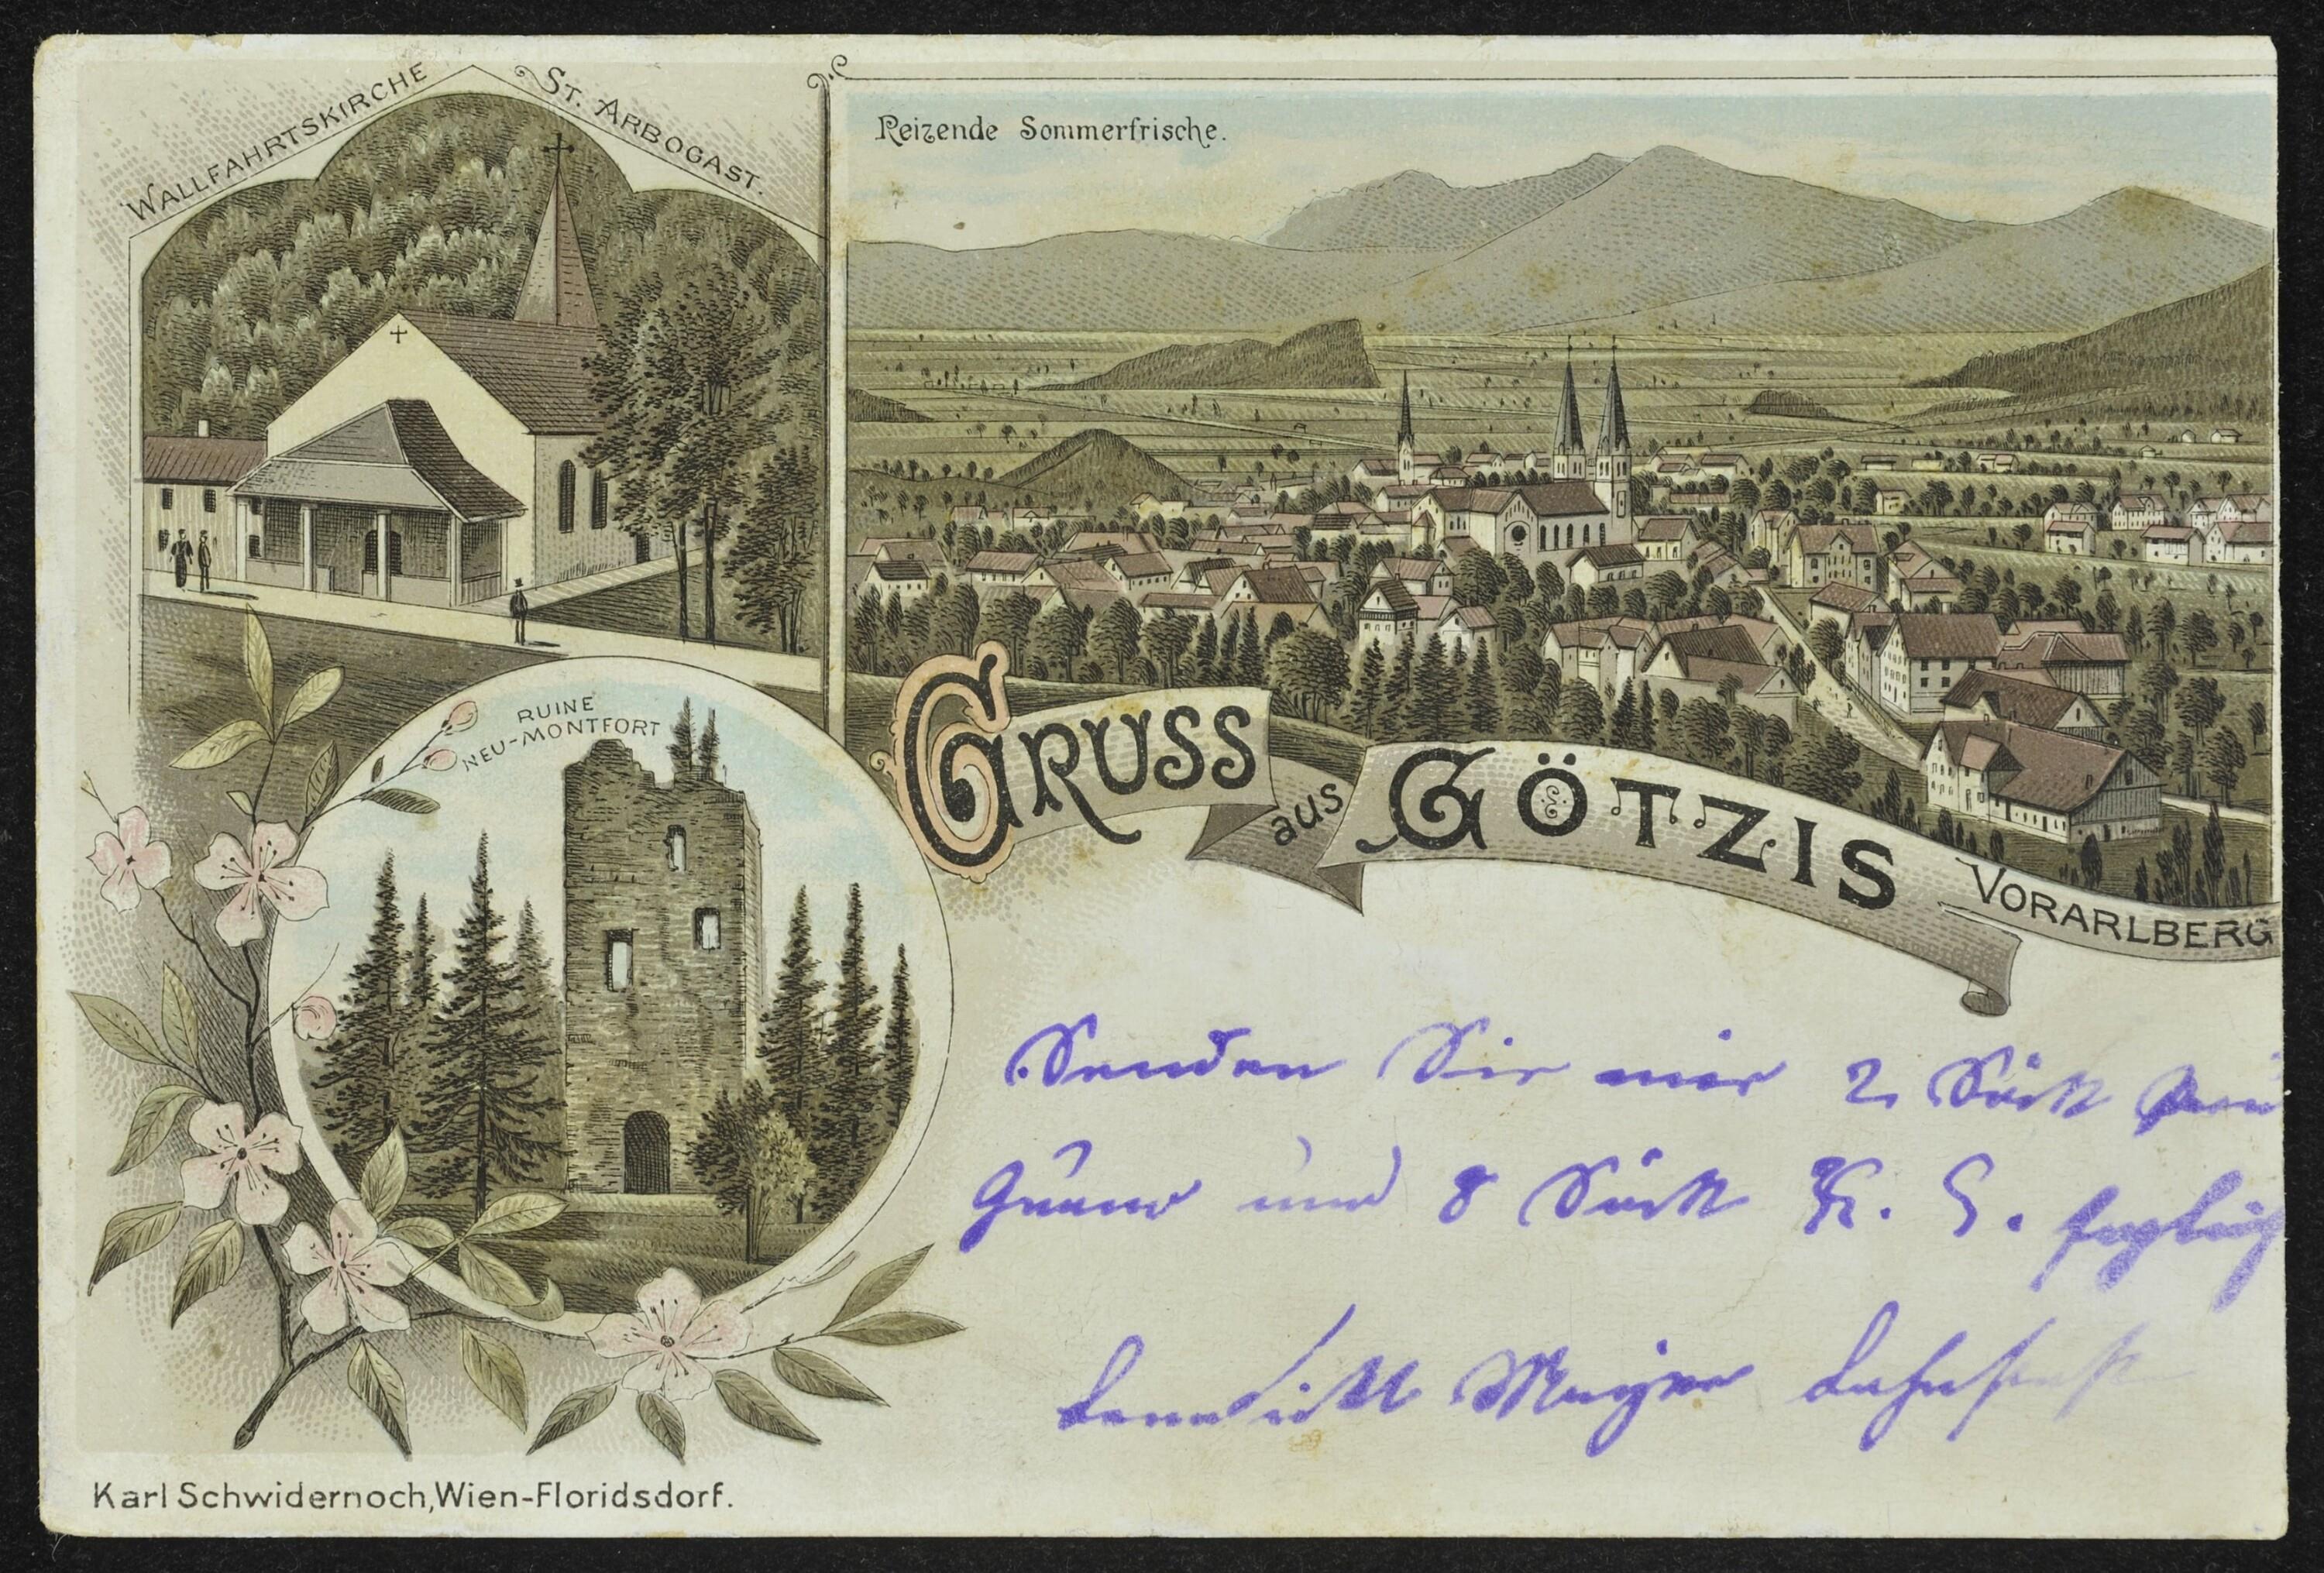 WALLFAHRTSKIRCHE ST. ARBOGAST.
Reizende Sommerfrische.
RUINE
NEU-MONTFORT
GRUSS aus GÖTZIS VORARLBERG
Senden Sie mir 2 Säck
und 8 Säck K. S.
Mayer
Karl Schwidernoch, Wien-Floridsdorf.